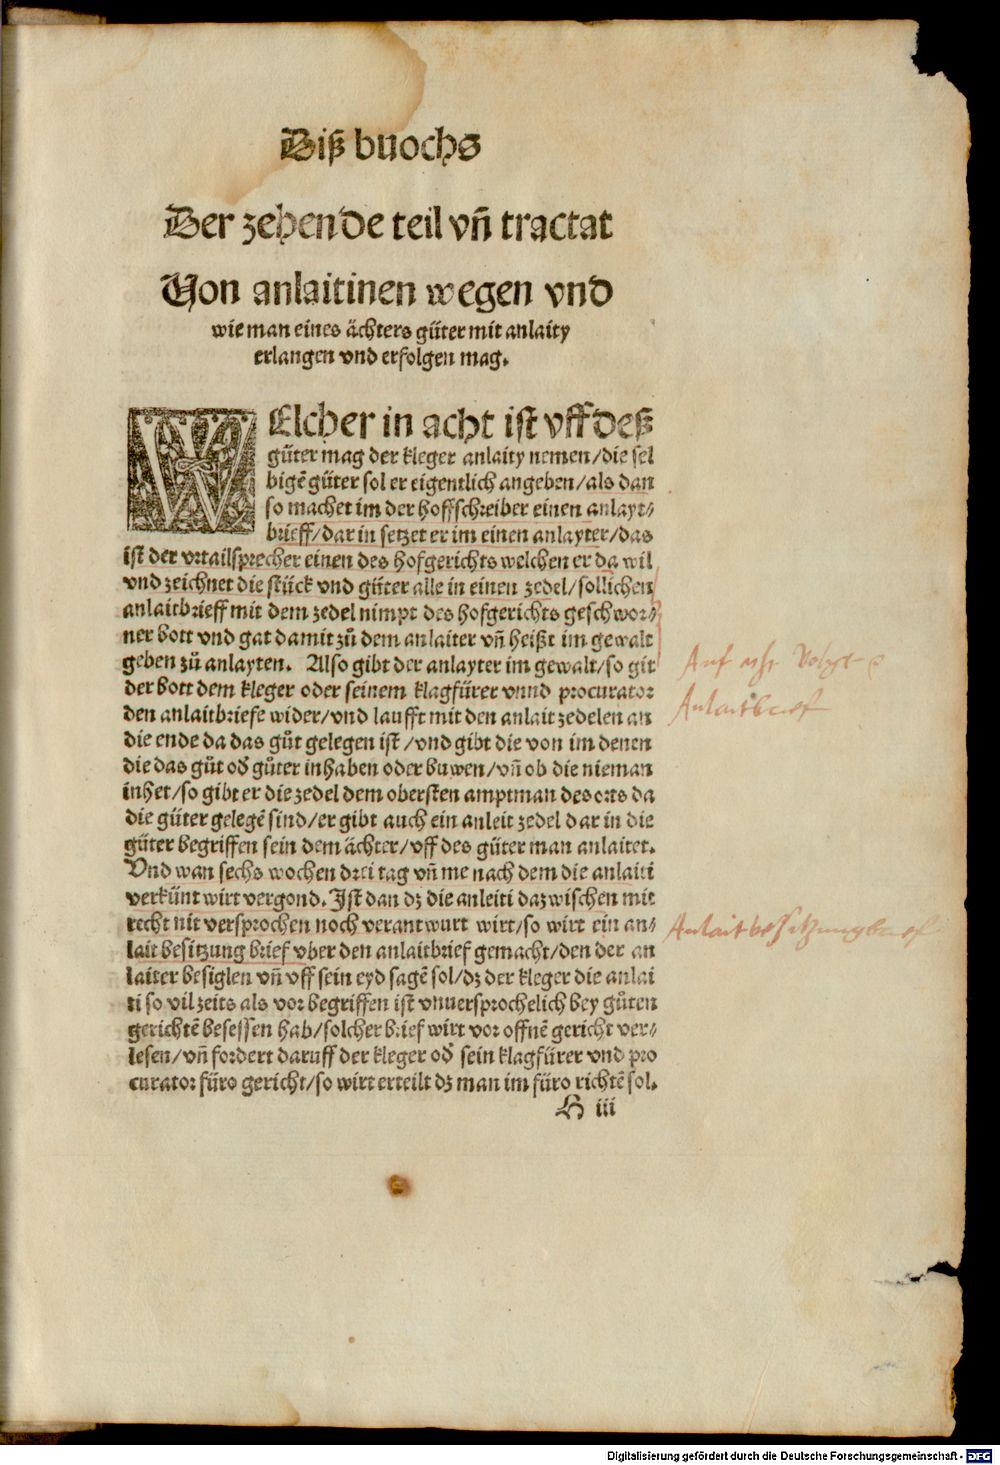 Diß buochs
Der zehende teil vñ tractat
Von anlaitinen wegen vnd
wie man eines ächters güter mit anlaity
erlangen vnd erfolgen mag.
WElcher in acht ist vff deß
güter mag der kleger anlaity nemen/die sel
bigē güter sol er eigentlich angeben/als dan
so machet im der hoffschreiber einen anlayt⸗
brieff/dar in setzet er im einen anlayter/das
ist der vrtailsprecher einen des hofgerichts welchen er da wil
vnd zeichnet die stück vnd güter alle in einen zedel/sollichen
anlaitbrieff mit dem zedel nimpt des hofgerichts geschwor⸗
ner bott vnd gat damit zů dem anlaiter vñ heißt im gewalt
geben zů anlayten. Also gibt der anlayter im gewalt/so git
der bott dem kleger oder seinem klagfürer vnnd procurator
den anlaitbriefe wider/vnd laufft mit den anlait zedelen an
die ende da das gůt gelegen ist/vnd gibt die von im denen
die das gůt oď gůter inhaben oder buwen/vñ ob die nieman
inhet/so gibt er die zedel dem obersten amptman des orts da
die güter gelegē sind/er gibt auch ein anleit zedel dar in die
güter begriffen sein dem ächter/vff des güter man anlaitet.
Vnd wan sechs wochen drei tag vñ me nach dem die anlaiti
verkünt wirt vergond. Ist dan dz die anleiti dazwischen mit
recht nit versprochen noch verantwurt wirt/so wirt ein an⸗
lait besitzung brief vber den anlaitbrief gemacht/den der an
laiter besiglen vñ vff sein eyd sagē sol/dz der kleger die anlai
ti so vil zeits als vor begriffen ist vnuersprochelich bey gůten
gerichtē besessen hab/solcher brief wirt vor offnē gericht ver⸗
lesen/vñ fordert daruff der kleger oď sein klagfürer vnd pro
curator füro gericht/so wirt erteilt dz man im füro richtē sol.
H iii
Auf
Anlaitbrief
Anlaitbesitzungbrief
Digitalisierung gefördert durch die Deutsche Forschungsgemeinschaft - DFG